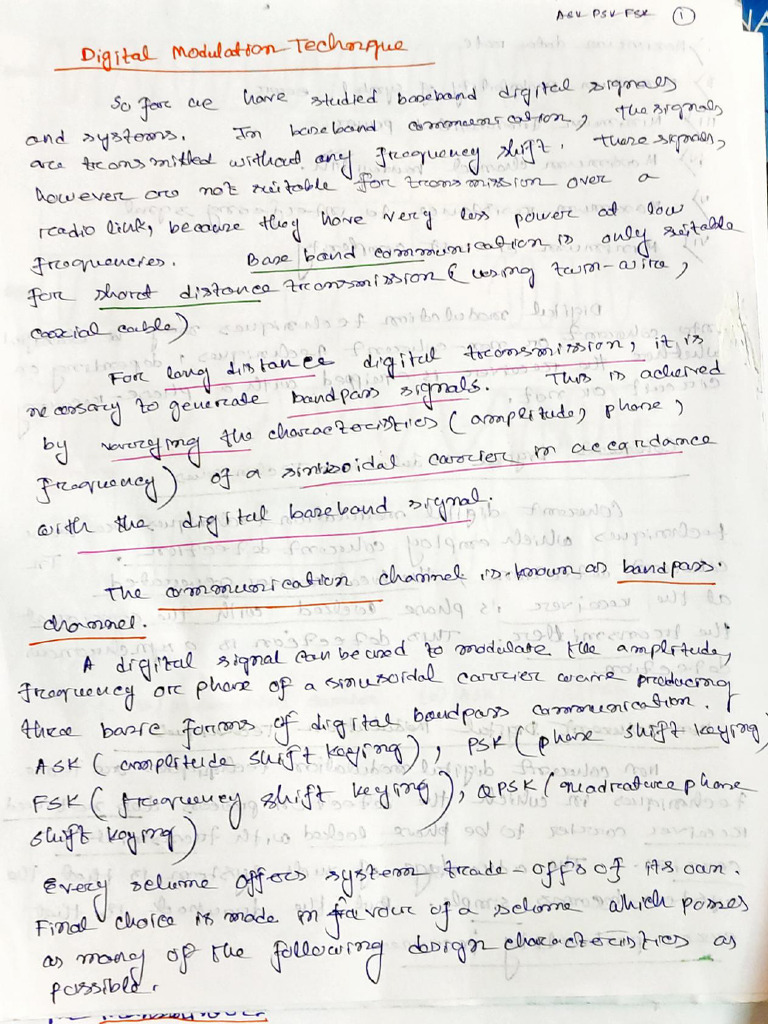 ASK PSK FSK 1
Digital Modulation Technique
So far we have studied baseband digital signals
and systems. In baseband communication, the signals
are transmitted without any frequency shift. These signals,
however are not suitable for transmission over a
radio link, because they have very less power at low
frequencies. Base band communication is only suitable
for short distance transmission (using twin-wire,
coaxial cable)
For long distance digital transmission, it is
necessary to generate bandpass signals. This is achieved
by varying the characteristics (amplitude, phase,
frequency) of a sinisoidal carrier in accordance
with the digital baseband signal.
The communication channel is known as bandpass.
channel.
A digital signal can be used to modulate the amplitude,
frequency or phase of a sinusoidal carrier wave producing
three basic forms of digital bandpass communication.
ASK (amplitude shift keying), PSK (phase shift keying)
FSK (frequency shift keying), QPSK (quadrature phase
shift keying)
Every scheme offers system trade-offs of its own.
Final choice is made in favour of a scheme which posses
as many of the following design characteristics as
possible.